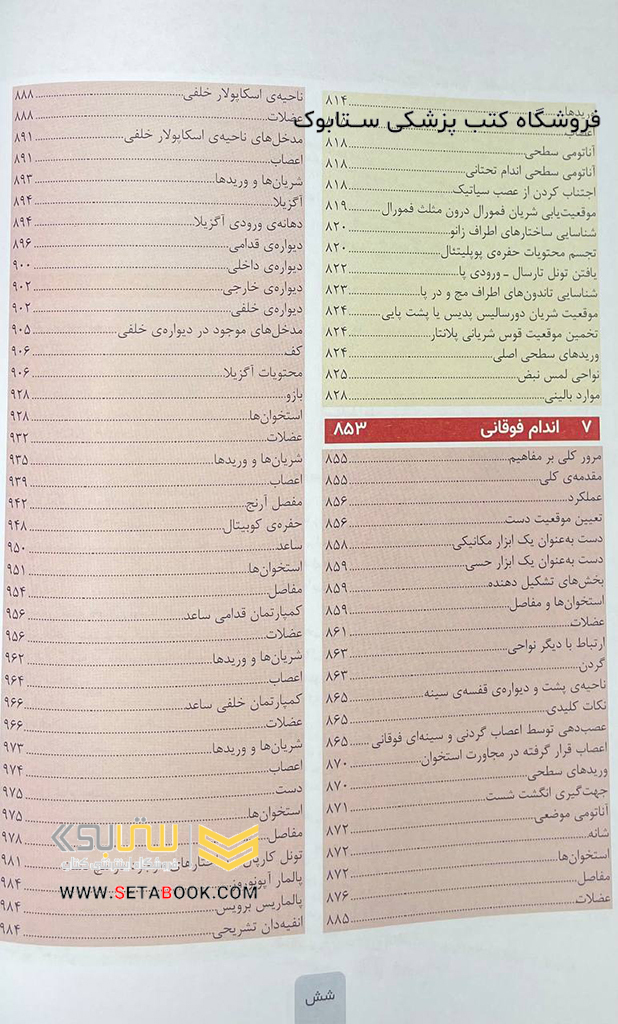 فروشگاه کتب پزشکی ستابوک
وریدها ۸۱۴
اعصاب
آناتومی سطحی ۸۱۸
آناتومی سطحی اندام تحتانی ۸۱۸
اجتناب کردن از عصب سیاتیک ۸۱۸
موقعیت‌یابی شریان فمورال درون مثلث فمورال ۸۱۹
شناسایی ساختارهای اطراف زانو ۸۲۰
تجسم محتویات حفره‌ی پوپلیتئال ۸۲۰
یافتن تونل تارسال ـ ورودی پا ۸۲۲
شناسایی تاندون‌های اطراف مچ و در پا ۸۲۳
موقعیت شریان دورسالیس پدیس یا پشت پایی ۸۲۴
تخمین موقعیت قوس شریانی پلانتار ۸۲۴
وریدهای سطحی اصلی ۸۲۴
نواحی لمس نبض ۸۲۵
موارد بالینی ۸۲۸
۷ اندام فوقانی ۸۵۳
مرور کلی بر مفاهیم ۸۵۵
مقدمه‌ی کلی ۸۵۵
عملکرد ۸۵۶
تعیین موقعیت دست ۸۵۶
دست به‌عنوان یک ابزار مکانیکی ۸۵۸
دست به‌عنوان یک ابزار حسی ۸۵۹
بخش‌های تشکیل دهنده ۸۵۹
استخوان‌ها و مفاصل ۸۵۹
عضلات ۸۶۱
ارتباط با دیگر نواحی ۸۶۳
گردن ۸۶۳
ناحیه‌ی پشت و دیواره‌ی قفسه‌ی سینه ۸۶۵
نکات کلیدی ۸۶۵
عصب‌دهی توسط اعصاب گردنی و سینه‌ای فوقانی ۸۶۵
اعصاب قرار گرفته در مجاورت استخوان ۸۷۰
وریدهای سطحی ۸۷۰
جهت‌گیری انگشت شست ۸۷۱
آناتومی موضعی ۸۷۲
شانه ۸۷۲
استخوان‌ها ۸۷۲
مفاصل ۸۷۶
عضلات ۸۸۵
ناحیه‌ی اسکاپولار خلفی ۸۸۸
عضلات ۸۸۸
مدخل‌های ناحیه‌ی اسکاپولار خلفی ۸۹۱
اعصاب ۸۹۱
شریان‌ها و وریدها ۸۹۳
آگزیلا ۸۹۴
دهانه‌ی ورودی آگزیلا ۸۹۴
دیواره‌ی قدامی ۸۹۶
دیواره‌ی داخلی ۹۰۰
دیواره‌ی خارجی ۹۰۲
دیواره‌ی خلفی ۹۰۲
مدخل‌های موجود در دیواره‌ی خلفی ۹۰۵
کف ۹۰۶
محتویات آگزیلا ۹۰۶
بازو ۹۲۸
استخوان‌ها ۹۲۸
عضلات ۹۳۲
شریان‌ها و وریدها ۹۳۵
اعصاب ۹۳۹
مفصل آرنج ۹۴۲
حفره‌ی کوبیتال ۹۴۸
ساعد ۹۵۰
استخوان‌ها ۹۵۱
مفاصل ۹۵۴
کمپارتمان قدامی ساعد ۹۵۶
عضلات ۹۵۶
شریان‌ها و وریدها ۹۶۲
اعصاب ۹۶۴
کمپارتمان خلفی ساعد ۹۶۶
عضلات ۹۶۶
شریان‌ها و وریدها ۹۷۳
اعصاب ۹۷۴
دست ۹۷۵
استخوان‌ها ۹۷۵
مفاصل ۹۷۸
تونل کارپال ۹۸۱
پالمار آپونوروز ۹۸۴
پالماریس برویس ۹۸۴
انفیه‌دان تشریحی ۹۸۴
ستابوک
فروشگاه اینترنتی کتاب
WWW.SETABOOK.COM
شش